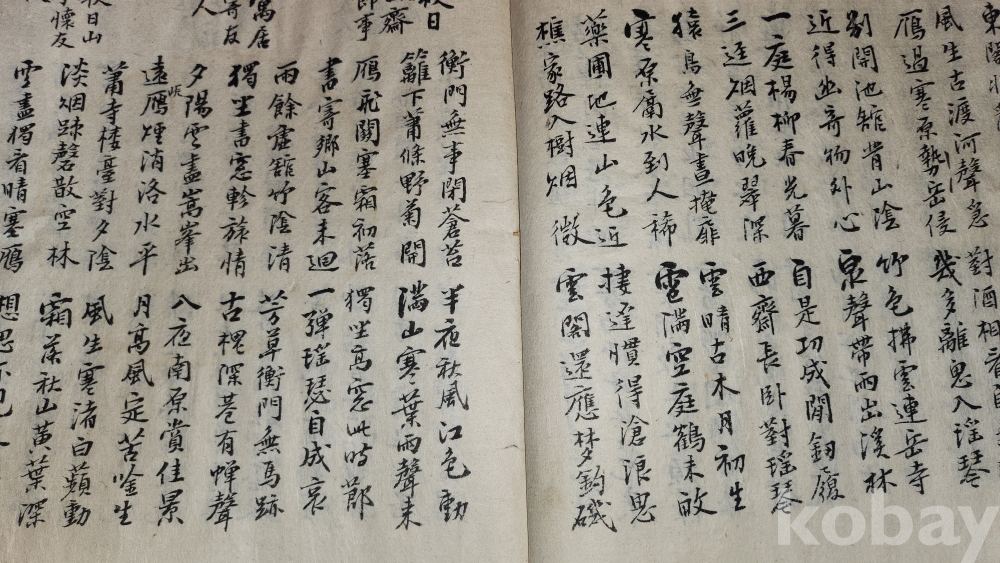 東陽
風生古渡河聲急 對酒相看自
雁過寒原勢岳侵 幾多離思入瑶琴
別開池館背山陰 竹色拂雲連岳寺
近得幽奇物外心 泉聲帶雨出溪林
一庭楊柳春光暮 自是功成閒釼履
三逕烟蘿晚翠深 西齋長卧對瑶琴
猿鳥無聲晝掩扉 雲晴古木月初生
寒原隔水到人稀 雪滿空庭鶴未敀
藥圃地連山色近 捿遲慣得滄浪思
樵家路入樹烟微 雲閣還應夢釣磯
秋日
齋
即事
衡門無事閉蒼苔 半夜秋風江色動
籬下蕭條野菊開 滿山寒葉雨聲来
鴈飛關塞霜初落 獨坐高窓此時節
書寄鄉山客未迴 一弾瑶瑟自成哀
寓居
寄友
人
雨餘虛館竹陰清 芳草衡門無馬跡
獨坐書窓軫旅情 古槐深巷有蟬聲
夕陽雲盡嵩峯出 八夜南原賞佳景
遠雁煙消洛水平 月高風定苦唫生
秋日山
懷友
蕭寺楼臺對夕陰 風生寒渚白蘋動
淡烟踈磬散空林 霜葉秋山黃葉深
雲盡獨看晴塞鴈 想思不已
kobay